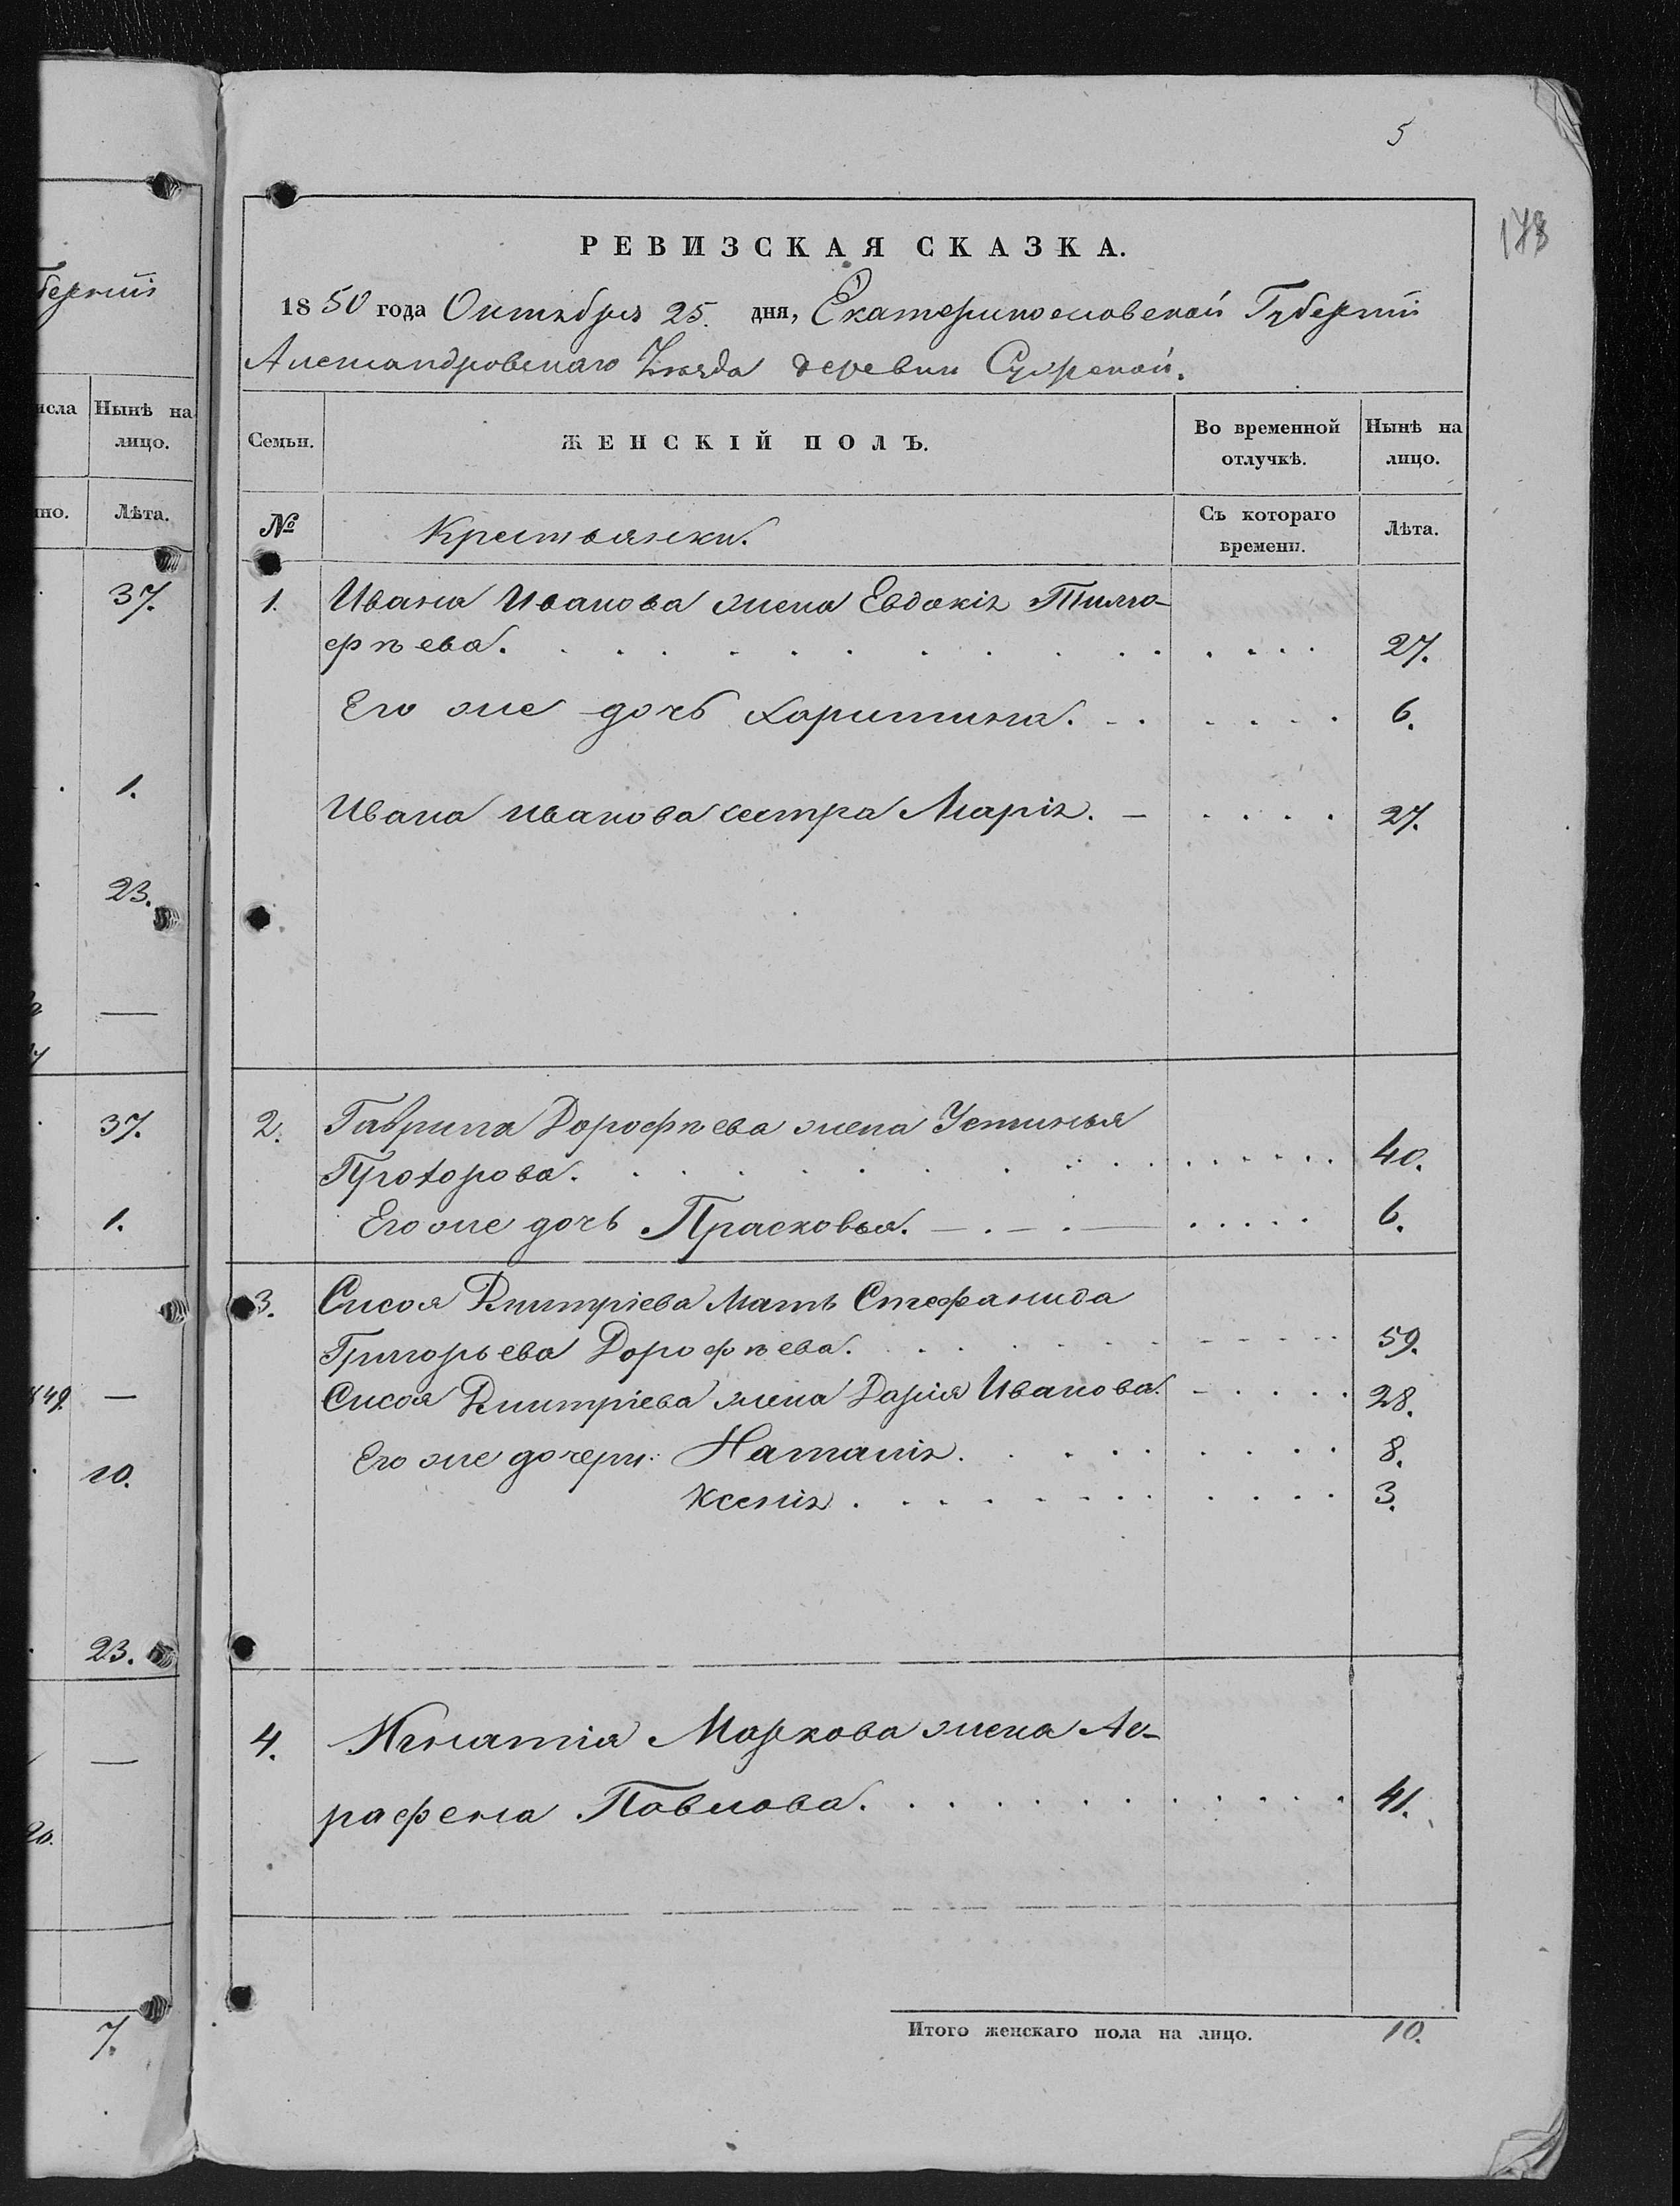 5
178
РЕВИЗСКАЯ СКАЗКА.
1850 года Октября 25. дня, Екатеринославской Губерніи
Александровскаго Уѣзда деревни
исла
Нынѣ на лицо.
Лѣта.
37.
1.
23.
—
37.
1.
849. —
10.
23.
—
20.
7.
Семьи.
ЖЕНСКІЙ ПОЛЪ.
Во временной отлучкѣ.
Нынѣ на лицо.
№
Крестьянки.
Съ котораго времени.
Лѣта.
1. Ивана Иванова жена Евдокія Тимо-
фѣева. 27.
Его же дочь Харитина. 6.
Ивана Иванова сестра Марія. 27.
2. Гаврила Дорофѣева жена Устинья
Прохорова. 40.
Его же дочь Прасковья. 6.
3. Сисоя Дмитріева Мать Стефанида
Григорьева Дорофѣева. 59.
Сисоя Дмитріева жена Дарія Иванова. 28.
Его же дочери: Наталія. 8.
Ксенія. 3.
4. Игнатія Маркова жена Аг-
рафена Павлова. 41.
Итого женскаго пола на лицо. 10.